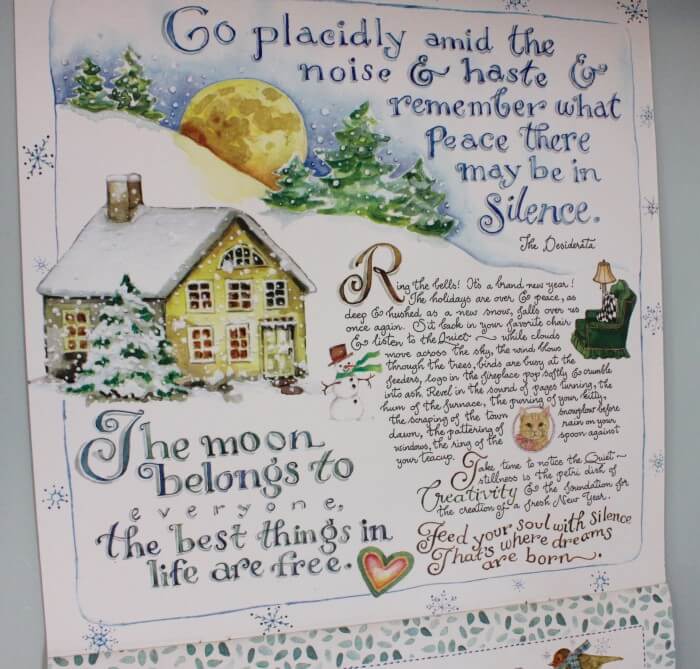 Go placidly amid the
noise & haste &
remember what
Peace there
may be in
Silence.
The Desiderata
Ring the bells! It's a brand new year!
The holidays are over & peace, as
deep & hushed as a new snow, falls over us
once again. Sit back in your favorite chair
& listen to the Quiet ~ while clouds
move across the sky, the wind blows
through the trees, birds are busy at the
feeders, logs in the fireplace pop softly & crumble
into ash. Revel in the sound of pages turning, the
hum of the furnace, the purring of your kitty,
the scraping of the town snowplow before
dawn, the pattering of rain on your
windows, the ring of the spoon against
your teacup.
Take time to notice the Quiet ~
stillness is the petri dish of
Creativity & the foundation for
the creation of a fresh New Year.
Feed your soul with silence
That's where dreams
are born ~.
The moon
belongs to
everyone,
the best things in
life are free.